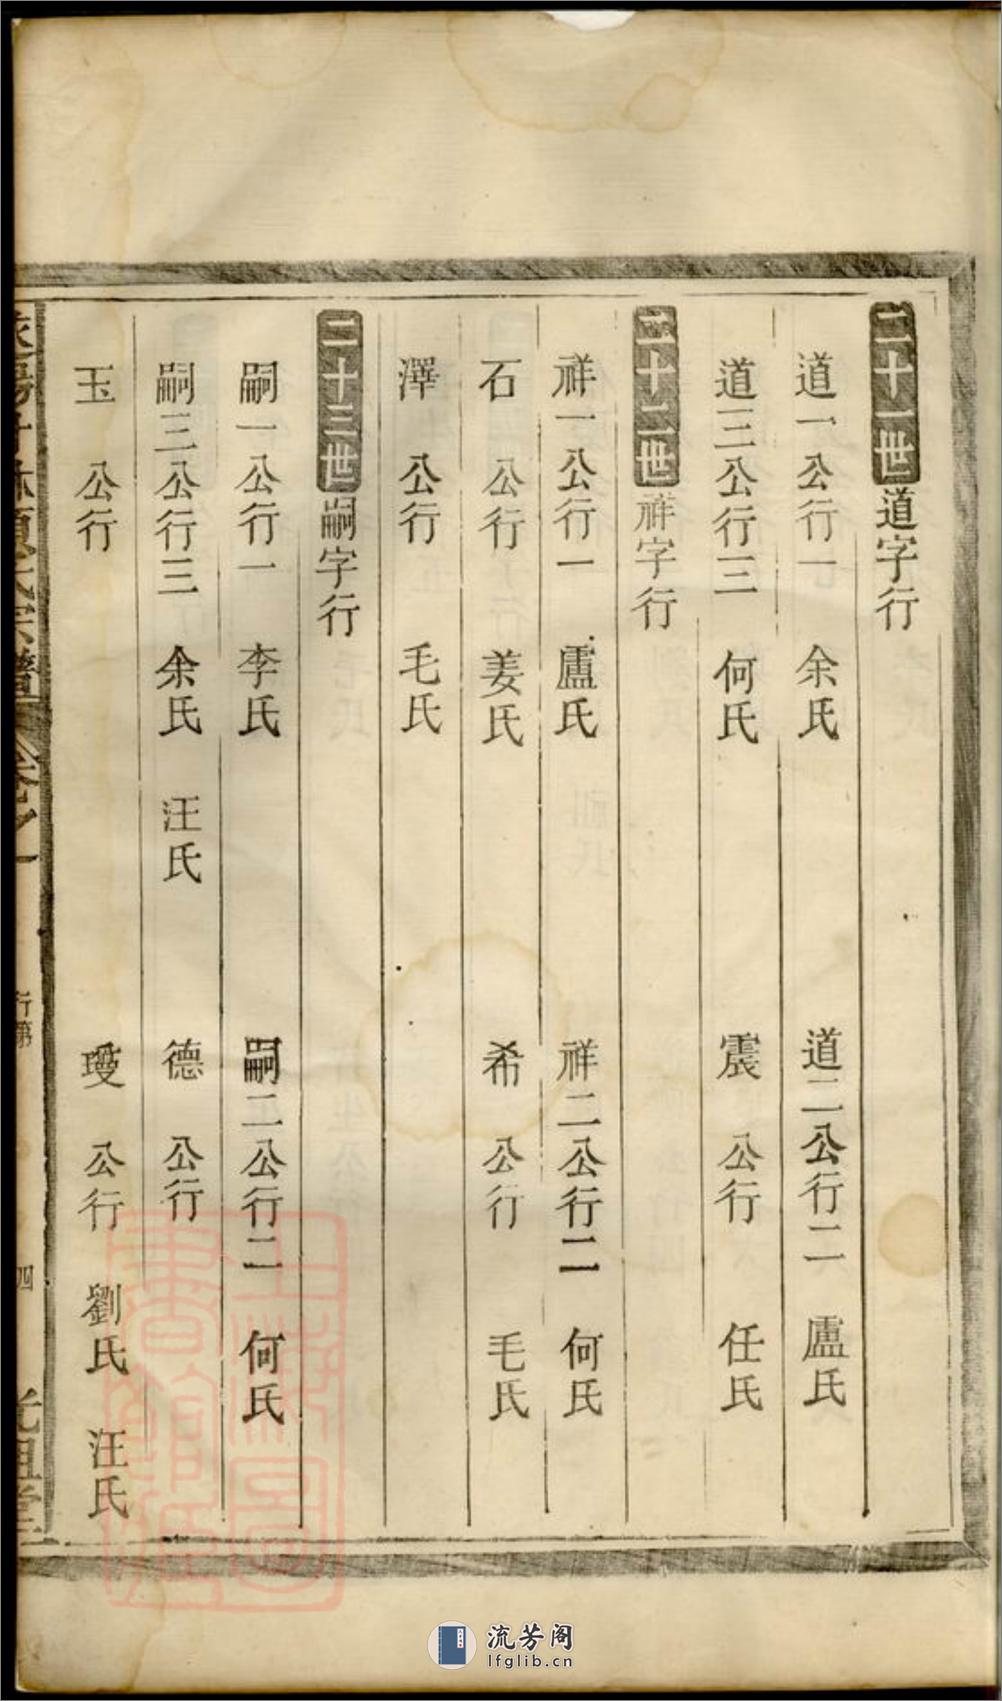 二十一世道字行
道一公行一 余氏 道二公行二 盧氏
道三公行三 何氏 震 公行 任氏
二十二世祥字行
祥一公行一 盧氏 祥二公行二 何氏
石 公行 姜氏 希 公行 毛氏
澤 公行 毛氏
二十三世嗣字行
嗣一公行一 李氏 嗣二公行二 何氏
嗣三公行三 余氏 汪氏 德 公行
玉 公行 公行 劉氏 汪氏
宗譜 卷之一 行第 四 光祖堂
上海圖書館藏
流芳阁
lfglib.cn